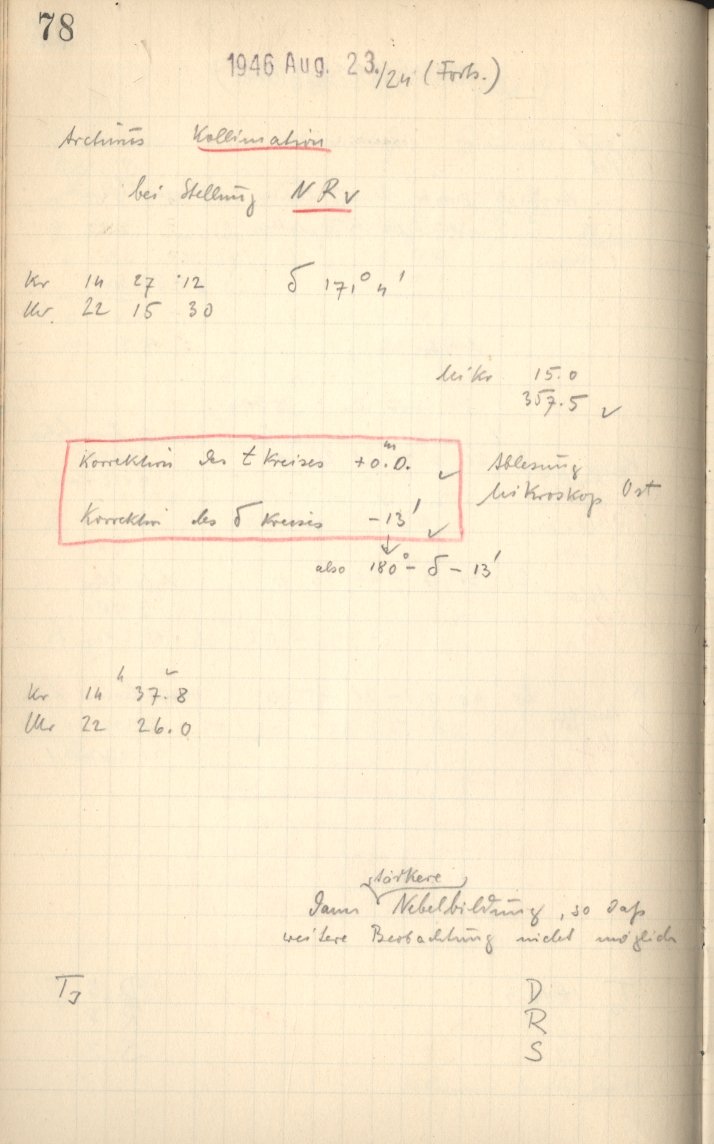 78
1946 Aug. 23./24 (Forts.)
Arcturus Kollimation
bei Stellung NR ✓
Kr 14 27 12 δ 171° 4'
Uhr 22 15 30
Mikr 15.0
357.5 ✓
Korrektion des t Kreises +0.ᵐ0. ✓ Ablesung
Mikroskop Ost
Korrektion des δ Kreises -13' ✓
↓
also 180° - δ - 13'
Kr 14ʰ 37.8
Uhr 22 26.0
stärkere
Dann Nebelbildung, so daß
weitere Beobachtung nicht möglich
D
R
S